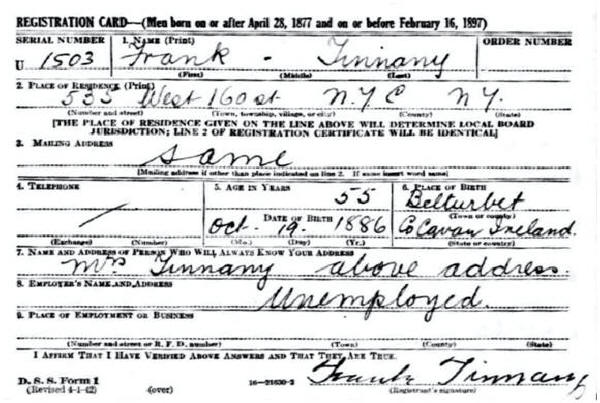 REGISTRATION CARD—(Men born on or after April 28, 1877 and on or before February 16, 1897)
SERIAL NUMBER 1. NAME (Print) ORDER NUMBER
U 1503 Frank - Tinnany
(First) (Middle) (Last)
2. PLACE OF RESIDENCE (Print)
535 West 160 st N.Y.C N.Y.
(Number and street) (Town, township, village, or city) (County) (State)
[THE PLACE OF RESIDENCE GIVEN ON THE LINE ABOVE WILL DETERMINE LOCAL BOARD
JURISDICTION; LINE 2 OF REGISTRATION CERTIFICATE WILL BE IDENTICAL]
3. MAILING ADDRESS
Same
[Mailing address if other than place indicated on line 2. If same insert word same]
4. TELEPHONE 5. AGE IN YEARS 6. PLACE OF BIRTH
55 Belturbet
DATE OF BIRTH (Town or county)
Oct. 19. 1886 Co Cavan Ireland.
(Exchange) (Number) (Mo.) (Day) (Yr.) (State or country)
7. NAME AND ADDRESS OF PERSON WHO WILL ALWAYS KNOW YOUR ADDRESS
Mrs Tinnany above address.
8. EMPLOYER'S NAME AND ADDRESS
Unemployed.
9. PLACE OF EMPLOYMENT OR BUSINESS
(Number and street or R. F. D. number) (Town) (County) (State)
I AFFIRM THAT I HAVE VERIFIED ABOVE ANSWERS AND THAT THEY ARE TRUE.
D. S. S. Form 1 Frank Tinnany
(Revised 4-1-42) (over) 16—21630-2 (Registrant's signature)